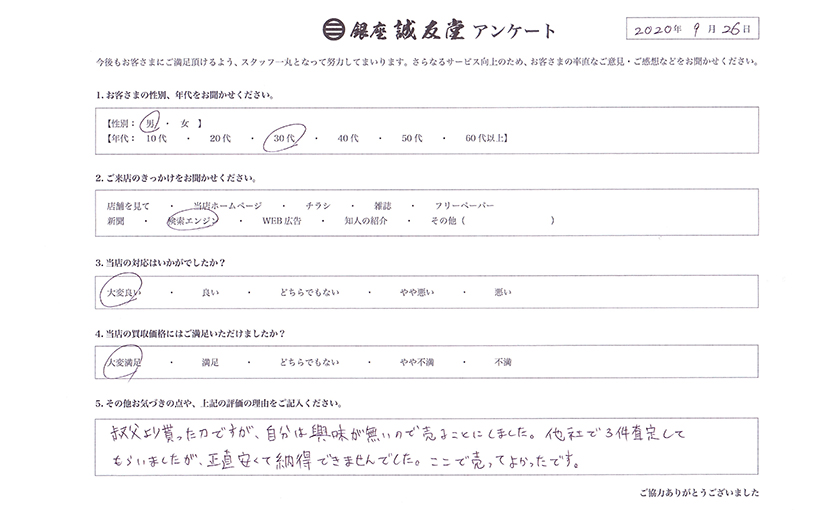 銀座 誠友堂 アンケート
2020年 9月 26日
今後もお客さまにご満足頂けるよう、スタッフ一丸となって努力してまいります。さらなるサービス向上のため、お客さまの率直なご意見・ご感想などをお聞かせください。
1. お客さまの性別、年代をお聞かせください。
【性別： 男 ・ 女 】
【年代： 10代 ・ 20代 ・ 30代 ・ 40代 ・ 50代 ・ 60代以上】
2. ご来店のきっかけをお聞かせください。
店舗を見て ・ 当店ホームページ ・ チラシ ・ 雑誌 ・ フリーペーパー
新聞 ・ 検索エンジン ・ WEB広告 ・ 知人の紹介 ・ その他（ ）
3. 当店の対応はいかがでしたか？
大変良い ・ 良い ・ どちらでもない ・ やや悪い ・ 悪い
4. 当店の買取価格にはご満足いただけましたか？
大変満足 ・ 満足 ・ どちらでもない ・ やや不満 ・ 不満
5. その他お気づきの点や、上記の評価の理由をご記入ください。
叔父より貰ったのですが、自分は興味が無いので売ることにしました。他社で3件査定して
もらいましたが、正直安くて納得できませんでした。ここで売ってよかったです。
ご協力ありがとうございました